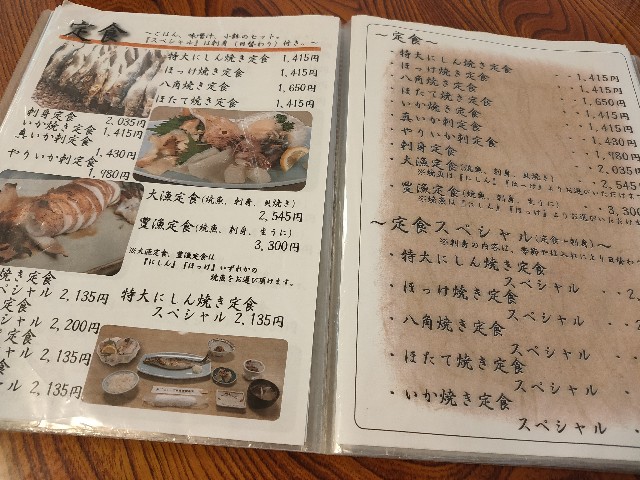 定食
～ごはん、味噌汁、小鉢のセット。
『スペシャル』は刺身（日替わり）付き。～
特大にしん焼き定食 1,415円
ほっけ焼き定食 1,415円
八角焼き定食 1,650円
ほたて焼き定食 1,415円
刺身定食 2,035円
いか焼き定食 1,415円
真いか刺定食 1,430円
やりいか刺定食 1,980円
大漁定食(焼魚、刺身、貝焼き) 2,545円
豊漁定食(焼魚、刺身、生うに) 3,300円
※大漁定食、豊漁定食は
『にしん』『ほっけ』いずれかの
焼魚をお選び頂けます。
焼き定食
ペシャル 2,135円
定食
シャル 2,200円
定食
シャル 2,135円
定食
シャル 2,135円
特大にしん焼き定食
スペシャル 2,135円
～定食～
・特大にしん焼き定食 ・・1,415円
・ほっけ焼き定食 ・・1,415円
・八角焼き定食 ・・1,650円
・ほたて焼き定食 ・・1,415円
・いか焼き定食 ・・1,415円
・真いか刺定食 ・・1,430円
・やりいか刺定食 ・・1,980円
・刺身定食 ・・2,035
・大漁定食(焼魚、刺身、貝焼き) ・・2,545
※焼魚は『にしん』『ほっけ』よりお選びいただけます
・豊漁定食(焼魚、刺身、生うに) ・・3,300
※焼魚は『にしん』『ほっけ』よりお選びいただけ
～定食スペシャル(定食+刺身)～
※刺身の内容は、季節や仕入れにより日替わ
・特大にしん焼き定食
スペシャル ・・2,
・ほっけ焼き定食
スペシャル ・・2
・八角焼き定食
スペシャル ・・
・ほたて焼き定食
スペシャル ・・
・いか焼き定食
スペシャル ・・